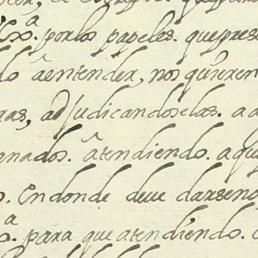 por los papeles. que pres
do â entender, nos quieren
ras, adJudicandoselas. a a
enados. âtendiendo. a qu
o. En donde deve darseno
para que atendiendo.